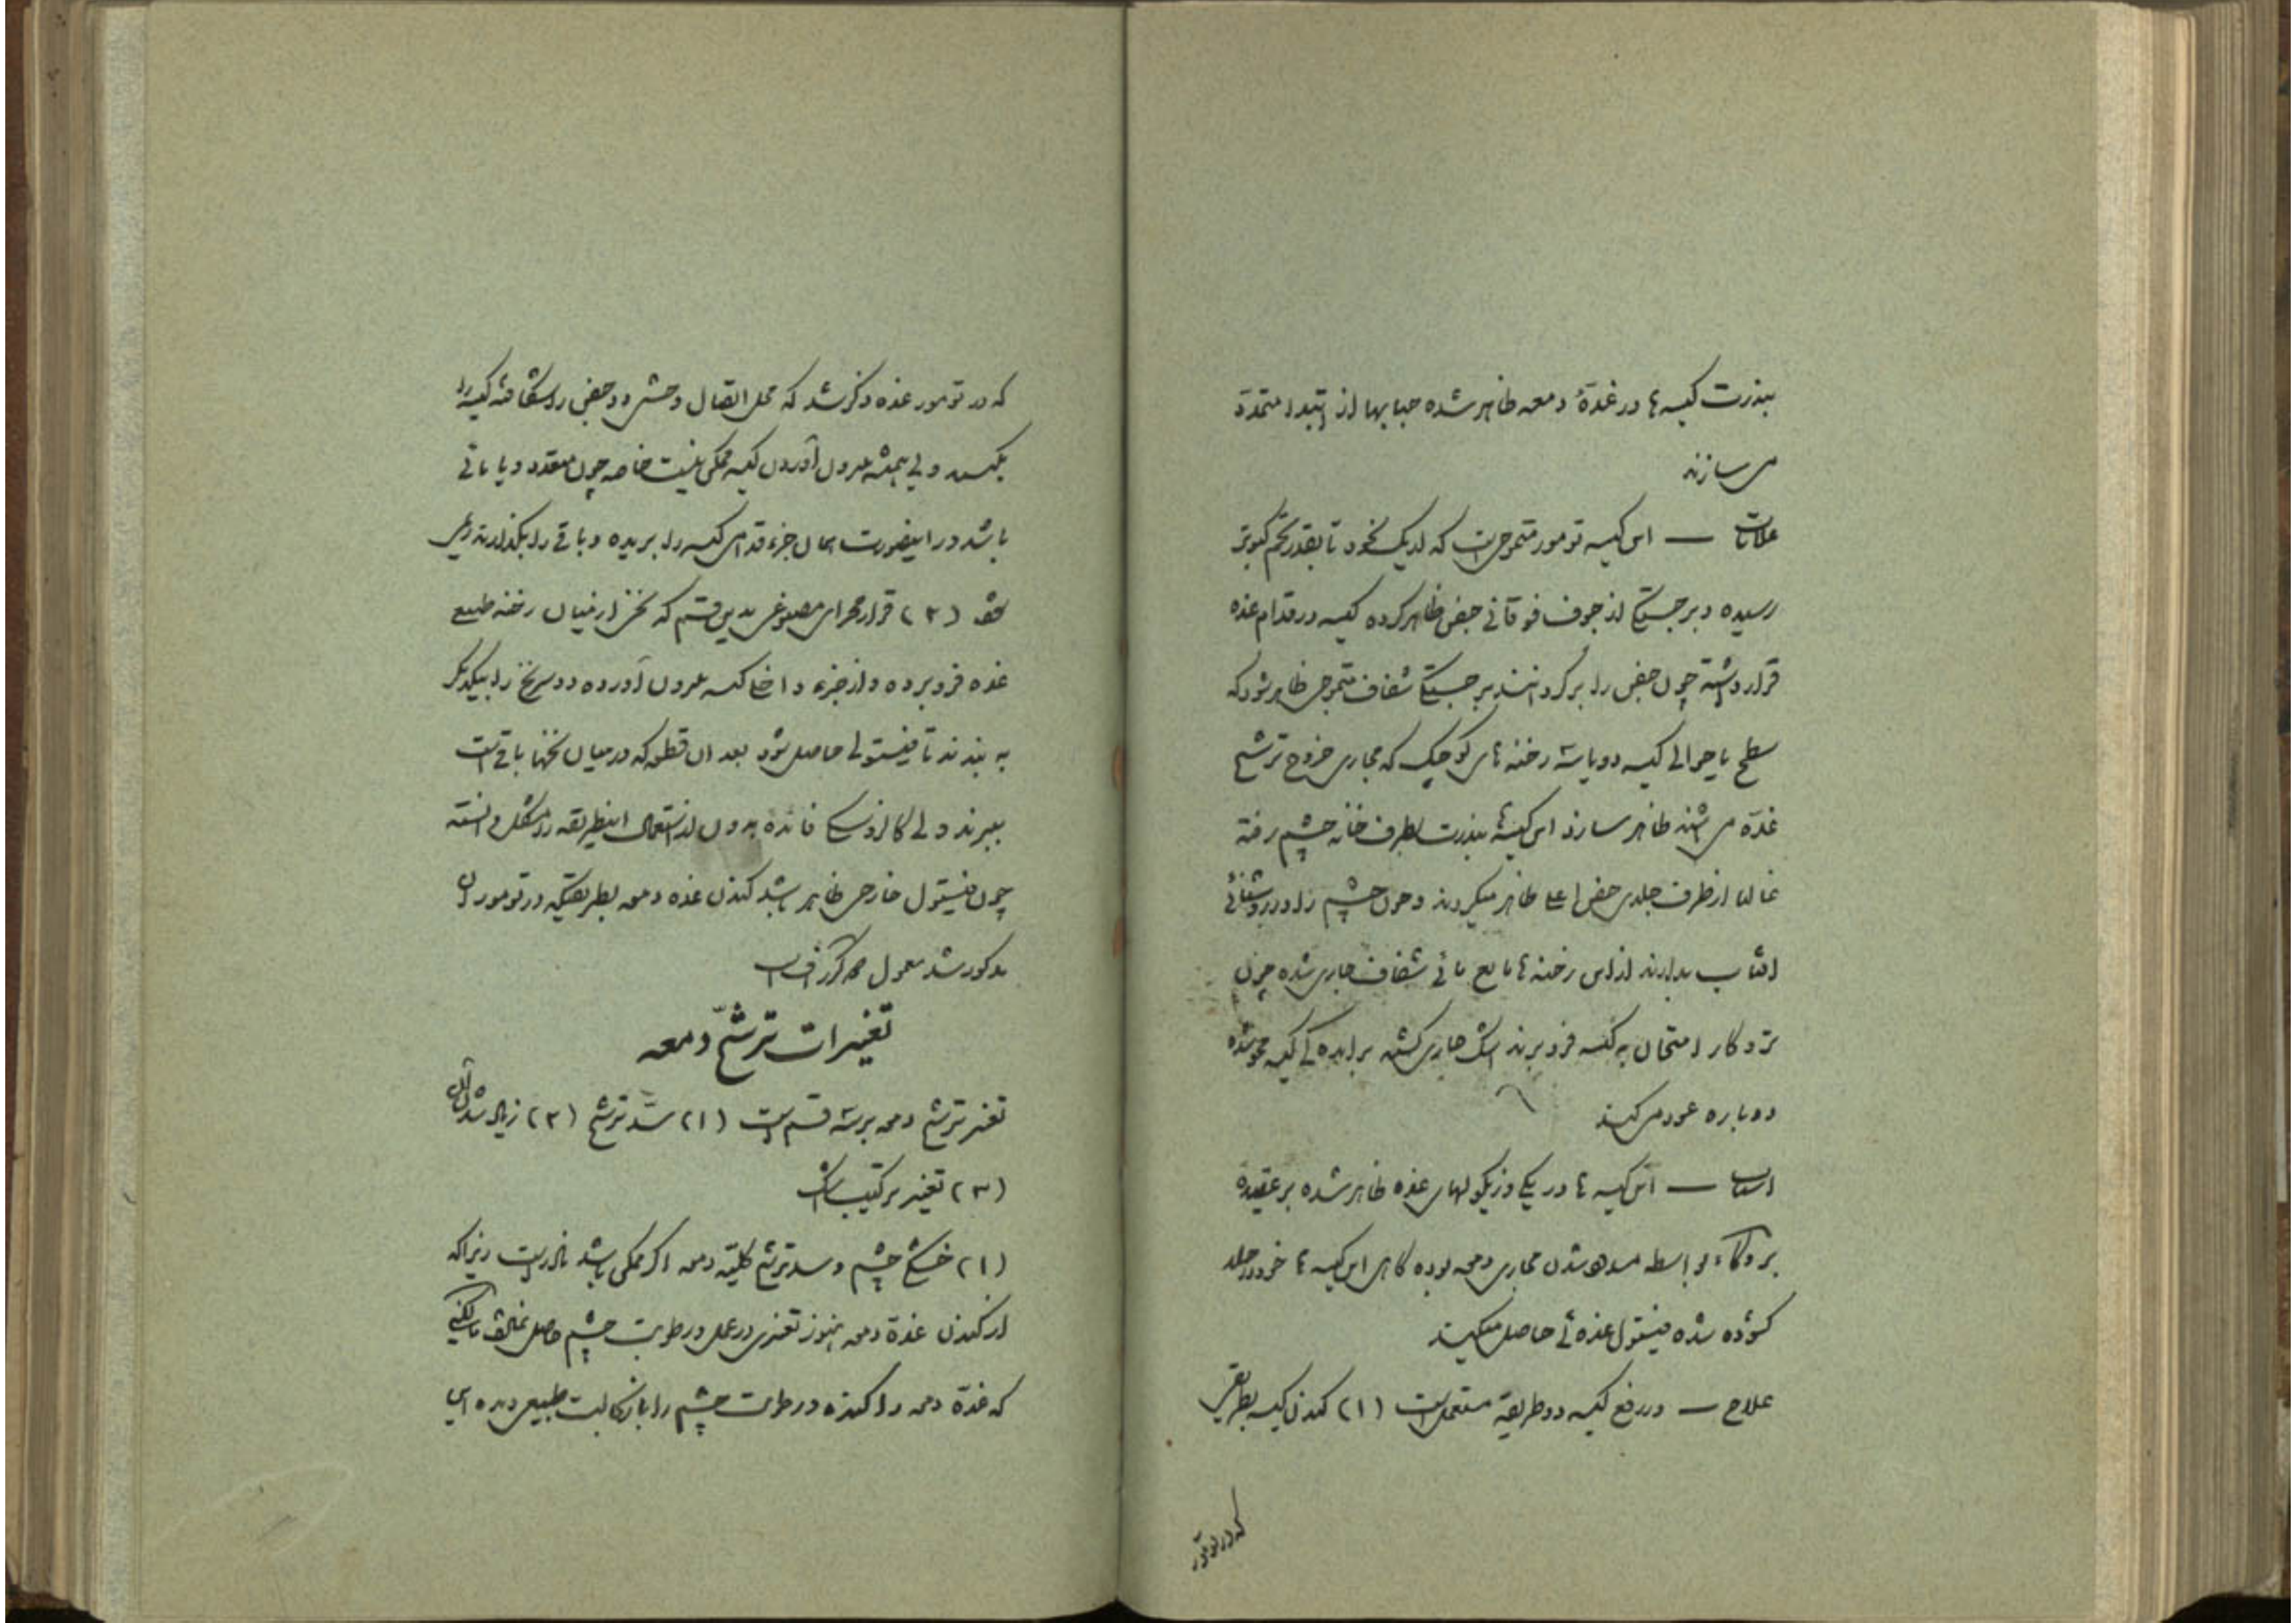 بندرت کیسه ها در غدهٔ دمعه ظاهر شده حبابها از ابتدا متعدد
می سازند
علامات — این کیسه تومور متموجی است که از یک نخود تا بقدر تخم کبوتر
رسیده و برجستگی از جوف فوقانی جفن ظاهر کرده کیسه در قدام غده
قرار داشته چون جفن را برگردانند برجستگی شفاف متموجی ظاهر شود که
سطح یا حوالی کیسه دو یا سه رخنه های کوچک که مجاری خروج ترشح
غده می باشند ظاهر سازد این کیسه ها بندرت بطرف خانه چشم رفته
غالبا از طرف جلدی جفن اعلی ظاهر میگردند و چون چشم را در روشنائی
افتاب بدارند از این رخنه ها مایع مائی شفاف جاری شده چون
تروکار امتحان به کیسه فرو برند اشک جاری گشته برآمده گی کیسه محو شده
دوباره عود می کند
اسباب — این کیسه ها در یکی وزیکولهای غده ظاهر شده بر عقیده
بروکا بواسطه مسدود شدن مجاری دمعه بوده گاهی این کیسه ها خود در جلد
گشوده شده فیستول غده ئی حاصل میکند
علاج — در رفع کیسه دو طریقه مستعمل است (۱) کندن کیسه بطریقی
که در تومور
که در تومور غده ذکر شد که محل اتصال وحشی دو جفن را شکافته کیسه را
بکنند ولی همیشه بیرون آوردن کیسه ممکن نیست خاصه چون متعدد و یا مائی
باشد در اینصورت همان جزء قدامی کیسه را بریده و باقی را بگذارند
(۲) قرار مجرای مصنوعی بدین قسم که نخی از میان رخنه طبیعی
غده فرو برده و از جزء داخلی کیسه بیرون آورده دو سر نخ را بیکدیگر
به بندند تا فیستولی حاصل شود بعد آن قطعه که در میان نخها باقی است
ببرند ولی فائده بردن از استعمال اینطریقه را مشکل دانسته
چون فیستول خارجی ظاهر باشد کندن غده دمعه بطریقیکه در تومور آن
مذکور شد معمول
تغییرات ترشح دمعه
تغییر ترشح دمعه بر سه قسم است (۱) سد ترشح (۲) زیاد شدن آن
(۳) تغییر ترکیب اشک
(۱) خشکی چشم و سد ترشح کلیهٔ دمعه اگر ممکن باشد نادر است زیراکه
از کندن غدهٔ دمعه هنوز تغییری در عمل و رطوبت چشم حاصل
که غدهٔ دمعه را کنده و رطوبت چشم را باز بحالت طبیعی دیده ایم